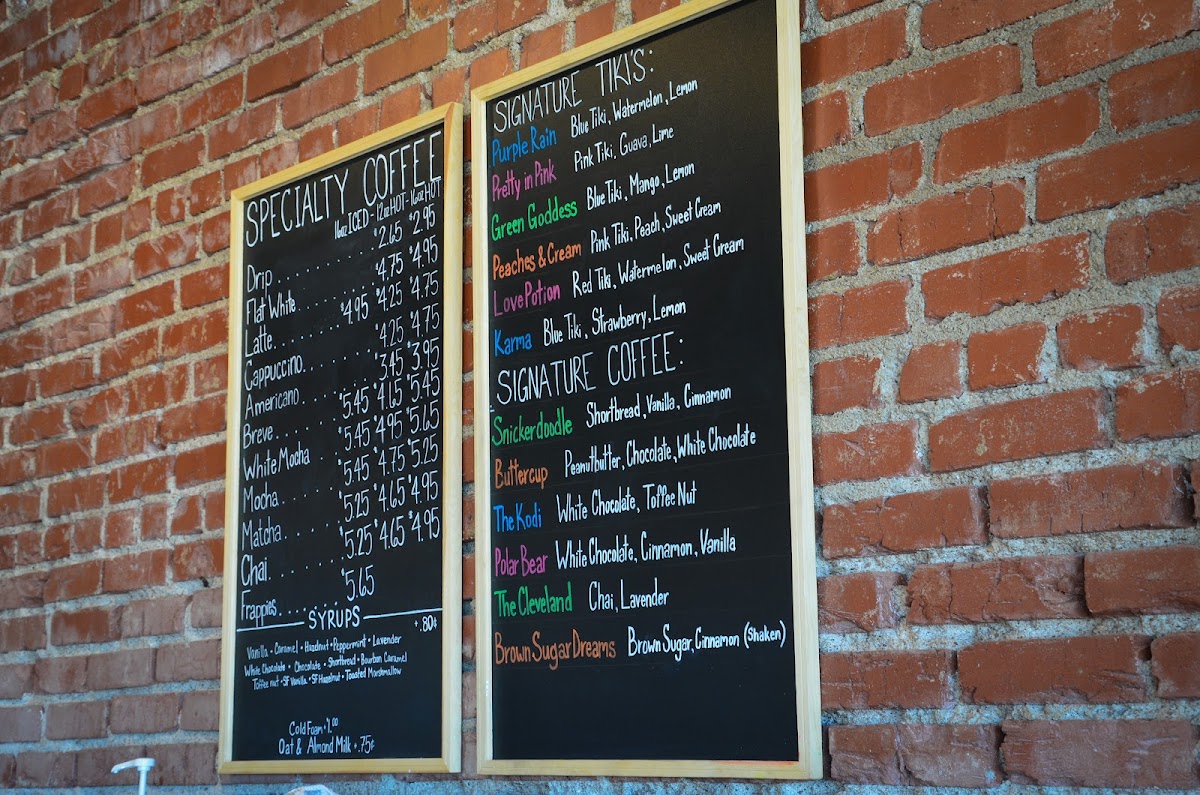 SPECIALTY COFFEE
16oz ICED - 12oz HOT - 16oz HOT
Drip . . . . . . . . . . $2.65 $2.95
Flat White . . . . . . . $4.75 $4.95
Latte . . . . . . $4.95 $4.25 $4.75
Cappuccino . . . . . . . $4.25 $4.75
Americano . . . . . . . $3.45 $3.95
Breve . . . . . . $5.45 $4.65 $5.45
White Mocha . . $5.45 $4.95 $5.65
Mocha . . . . . . $5.45 $4.75 $5.25
Matcha . . . . . $5.25 $4.65 $4.95
Chai . . . . . . . $5.25 $4.65 $4.95
Frappies . . . . . . $5.65
SYRUPS +.80¢
Vanilla • Caramel • Hazelnut • Peppermint • Lavender
White Chocolate • Chocolate • Shortbread • Bourbon Caramel
Toffee nut • SF Vanilla • SF Hazelnut • Toasted Marshmallow
Cold Foam + $1.00
Oat & Almond Milk +.75¢
SIGNATURE TIKI'S:
Purple Rain Blue Tiki, Watermelon, Lemon
Pretty in Pink Pink Tiki, Guava, Lime
Green Goddess Blue Tiki, Mango, Lemon
Peaches & Cream Pink Tiki, Peach, Sweet Cream
Love Potion Red Tiki, Watermelon, Sweet Cream
Karma Blue Tiki, Strawberry, Lemon
SIGNATURE COFFEE:
Snickerdoodle Shortbread, Vanilla, Cinnamon
Buttercup Peanutbutter, Chocolate, White Chocolate
The Kodi White Chocolate, Toffee Nut
Polar Bear White Chocolate, Cinnamon, Vanilla
The Cleveland Chai, Lavender
Brown Sugar Dreams Brown Sugar, Cinnamon (Shaken)